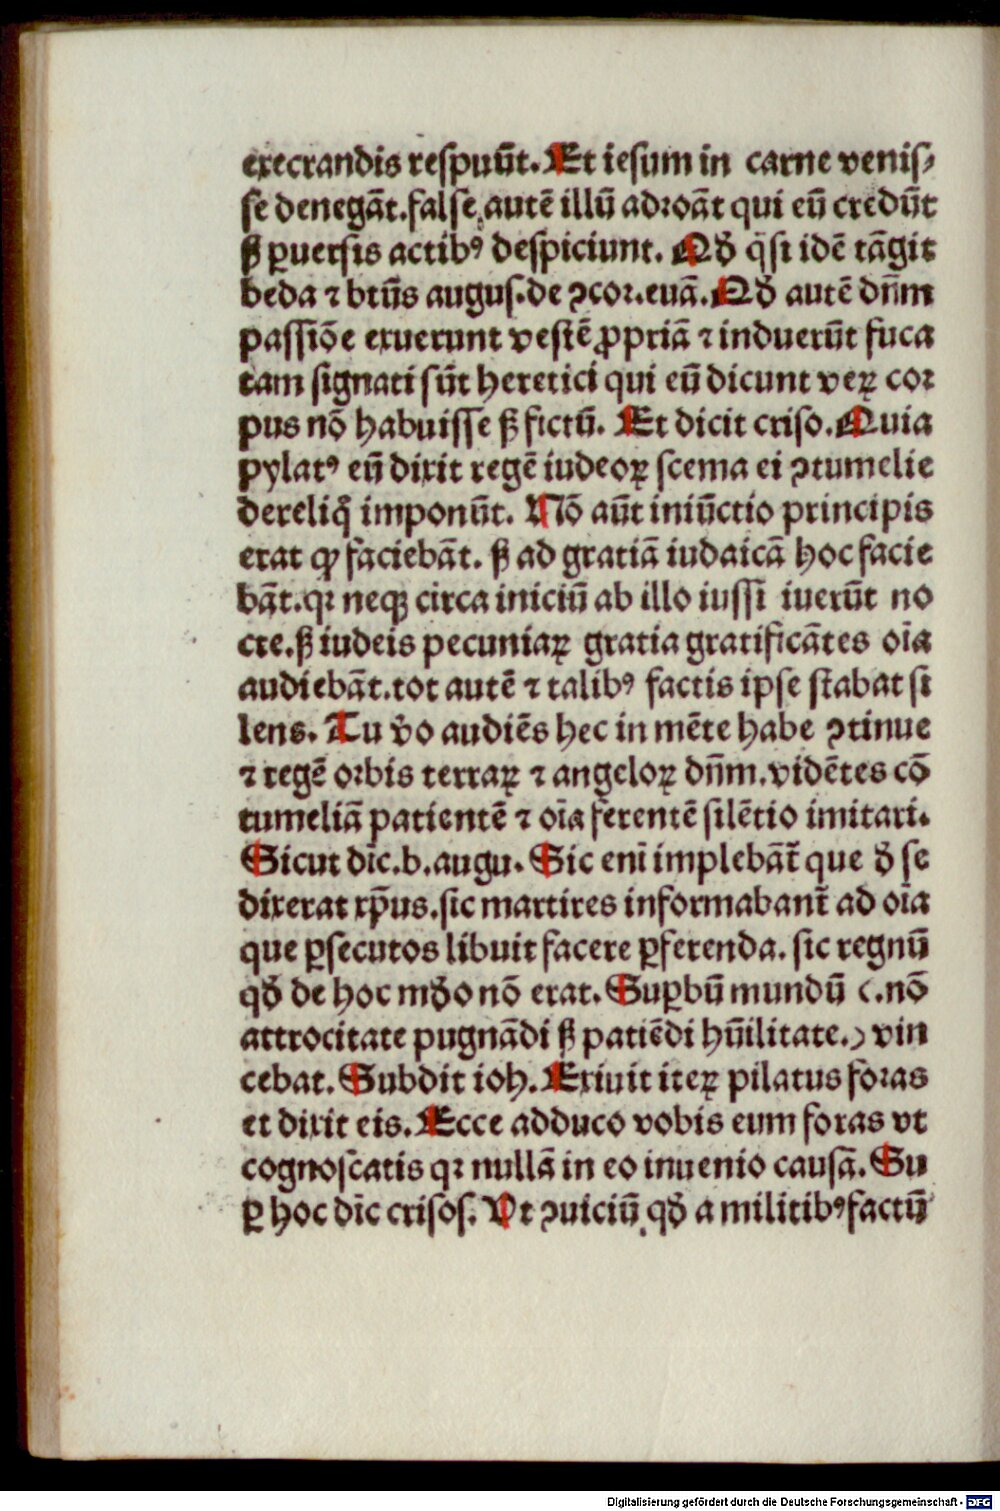 execrandis respuūt. Et iesum in carne venis⸗
se denegāt. false autē illū adꝛoāt qui eū credūt
ꝭ ꝑuersis actibꝰ despiciunt. Qđ q̄si idē tāgit
beda ⁊ btūs augus. de ꝯcoꝛ. euā. Qđ autē dn̄m
passiōe exuerunt vestē ꝓpriā ⁊ induerūt fuca
tam signati sūt heretici qui eū dicunt veꝝ coꝛ
pus nō habuisse ꝭ fictū. Et dicit criso. Quia
pylatꝰ eū dixit regē iudeoꝝ scema ei ꝯtumelie
dereliq̄ imponūt. Nō aūt iniūctio principis
erat ꝙ faciebāt. ꝭ ad gratiā iudaicā hoc facie
bāt. qꝛ neqꝫ circa iniciū ab illo iussi iuerūt no
cte. ꝭ iudeis pecuniaꝝ gratia gratificātes oīa
audiebāt. tot autē ⁊ talibꝰ factis ipse stabat si
lens. Tu v̄o audiēs hec in mēte habe ꝯtinue
⁊ regē oꝛbis terraꝝ ⁊ angeloꝝ dn̄m. vidētes cō
tumeliā patientē ⁊ oīa ferentē silētio imitari.
Sicut dīc. b. augu. Sic enī implebāt̄ que đ se
dixerat xp̄us. sic martires informabant̄ ad oīa
que ꝑsecutos libuit facere ꝑferenda. sic regnū
qđ de hoc mđo nō erat. Suꝑbū mundū (. nō
attrocitate pugnādi ꝭ patiēdi hūilitate.) vin
cebat. Subdit ioh. Exiuit iteꝝ pilatus foꝛas
et dixit eis. Ecce adduco vobis eum foꝛas vt
cognoscatis qꝛ nullā in eo inuenio causā. Su
ꝑ hoc dīc crisos. Vt ꝯuiciū qđ a militibꝰ factū
Digitalisierung gefördert durch die Deutsche Forschungsgemeinschaft - DFG